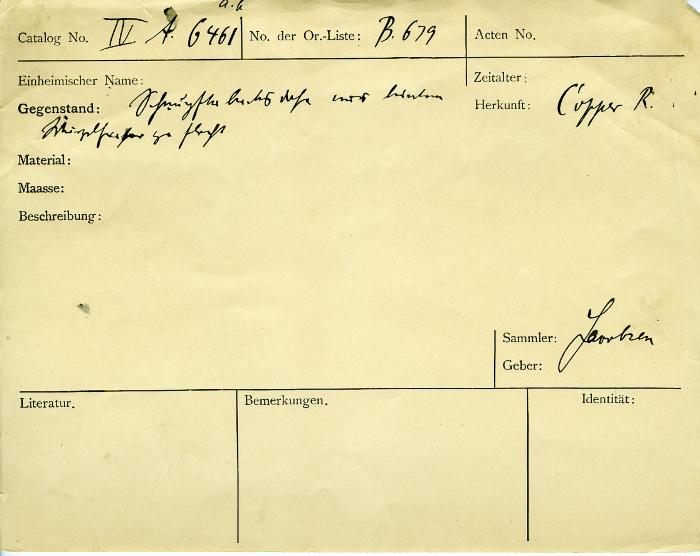 a.b
Catalog No. IV A. 6461 No. der Or.-Liste: B. 679 Acten No.
Einheimischer Name: Zeitalter:
Gegenstand: Schnupftabaksdose aus Herkunft: Copper R.
Material:
Maasse:
Beschreibung:
Sammler: Jacobsen
Geber:
Literatur. Bemerkungen. Identität: